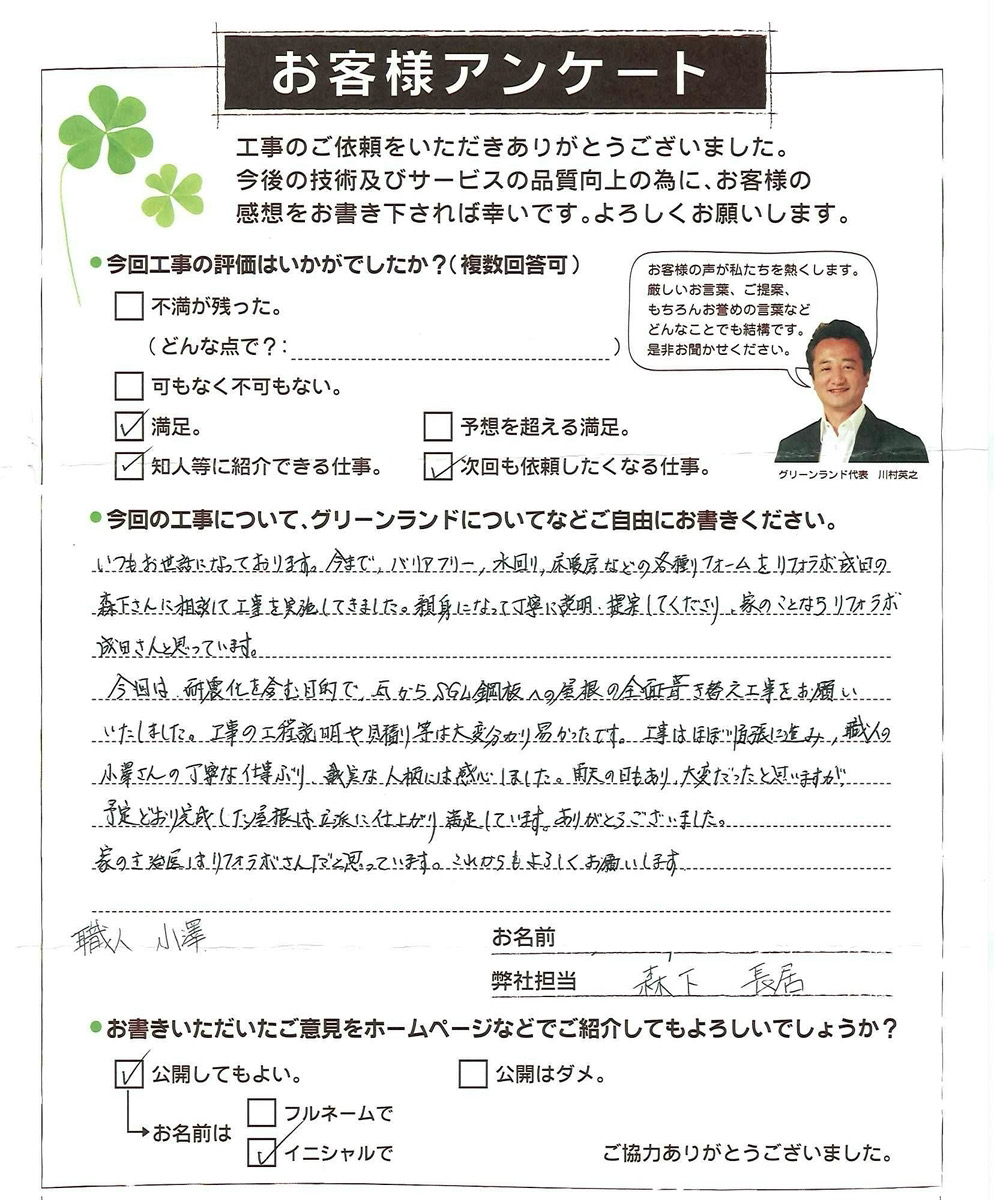 お客様アンケート
工事のご依頼をいただきありがとうございました。
今後の技術及びサービスの品質向上の為に、お客様の
感想をお書き下されば幸いです。よろしくお願いします。
●今回工事の評価はいかがでしたか？（複数回答可）
不満が残った。
（どんな点で？：　）
可もなく不可もない。
満足。
予想を超える満足。
知人等に紹介できる仕事。
次回も依頼したくなる仕事。
お客様の声が私たちを熱くします。
厳しいお言葉、ご提案、
もちろんお誉めの言葉など
どんなことでも結構です。
是非お聞かせください。
グリーンランド代表　川村英之
●今回の工事について、グリーンランドについてなどご自由にお書きください。
いつもお世話になっております。今まで、バリアフリー、水回り、床暖房などの各種リフォームをリフォラボ成田の
森下さんに相談して工事を実施してきました。親身になって丁寧に説明・提案してくださり、家のことならリフォラボ
成田さんと思っています。
今回は、耐震化を含む目的で、瓦からSGL鋼板への屋根の全面葺き替え工事をお願い
いたしました。工事の工程説明や見積り等は大変分かり易かったです。工事はほぼ順調に進み、職人の
小澤さんの丁寧な仕事ぶり、誠実な人柄には感心しました。雨天の日もあり、大変だったと思いますが、
予定どおり完成した屋根は立派に仕上がり満足しています。ありがとうございました。
家の主治医はリフォラボさんだと思っています。これからもよろしくお願いします
職人　小澤
お名前
弊社担当　森下　長居
●お書きいただいたご意見をホームページなどでご紹介してもよろしいでしょうか？
公開してもよい。
公開はダメ。
お名前は
フルネームで
イニシャルで
ご協力ありがとうございました。